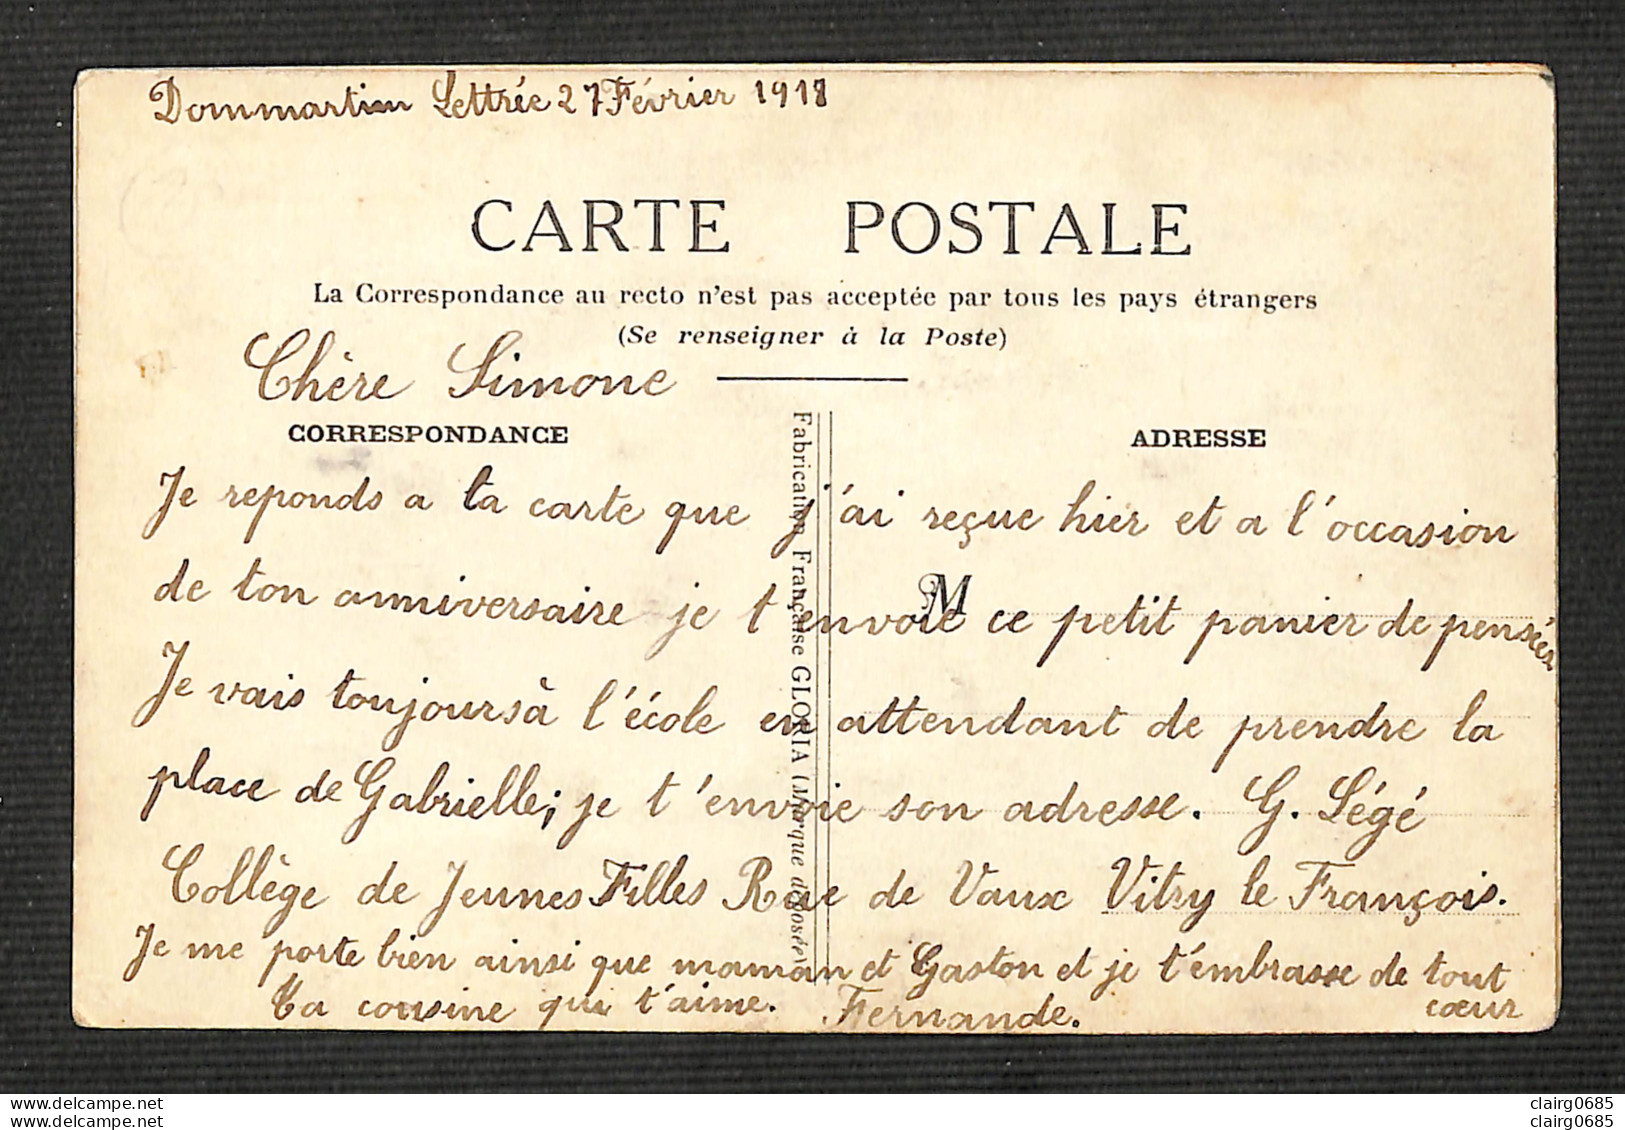 Dommartin Lettrée 27 Février 1918
CARTE POSTALE
La Correspondance au recto n'est pas acceptée par tous les pays étrangers
(Se renseigner à la Poste)
Chère Simone
CORRESPONDANCE
ADRESSE
Je reponds a ta carte que j'ai reçue hier et a l'occasion
de ton anniversaire je t'envoie ce petit panier de pensées
M
Je vais toujours à l'école en attendant de prendre la
place de Gabrielle; je t'envoie son adresse. G. Légé
Collège de Jeunes Filles Rue de Vaux Vitry le François.
Je me porte bien ainsi que maman et Gaston et je t'embrasse de tout
cœur
Ta cousine qui t'aime. Fernande.
Fabrication Française GLORIA (Marque déposée)
delcampe.net
clairg0685
delcampe.net
clairg0685